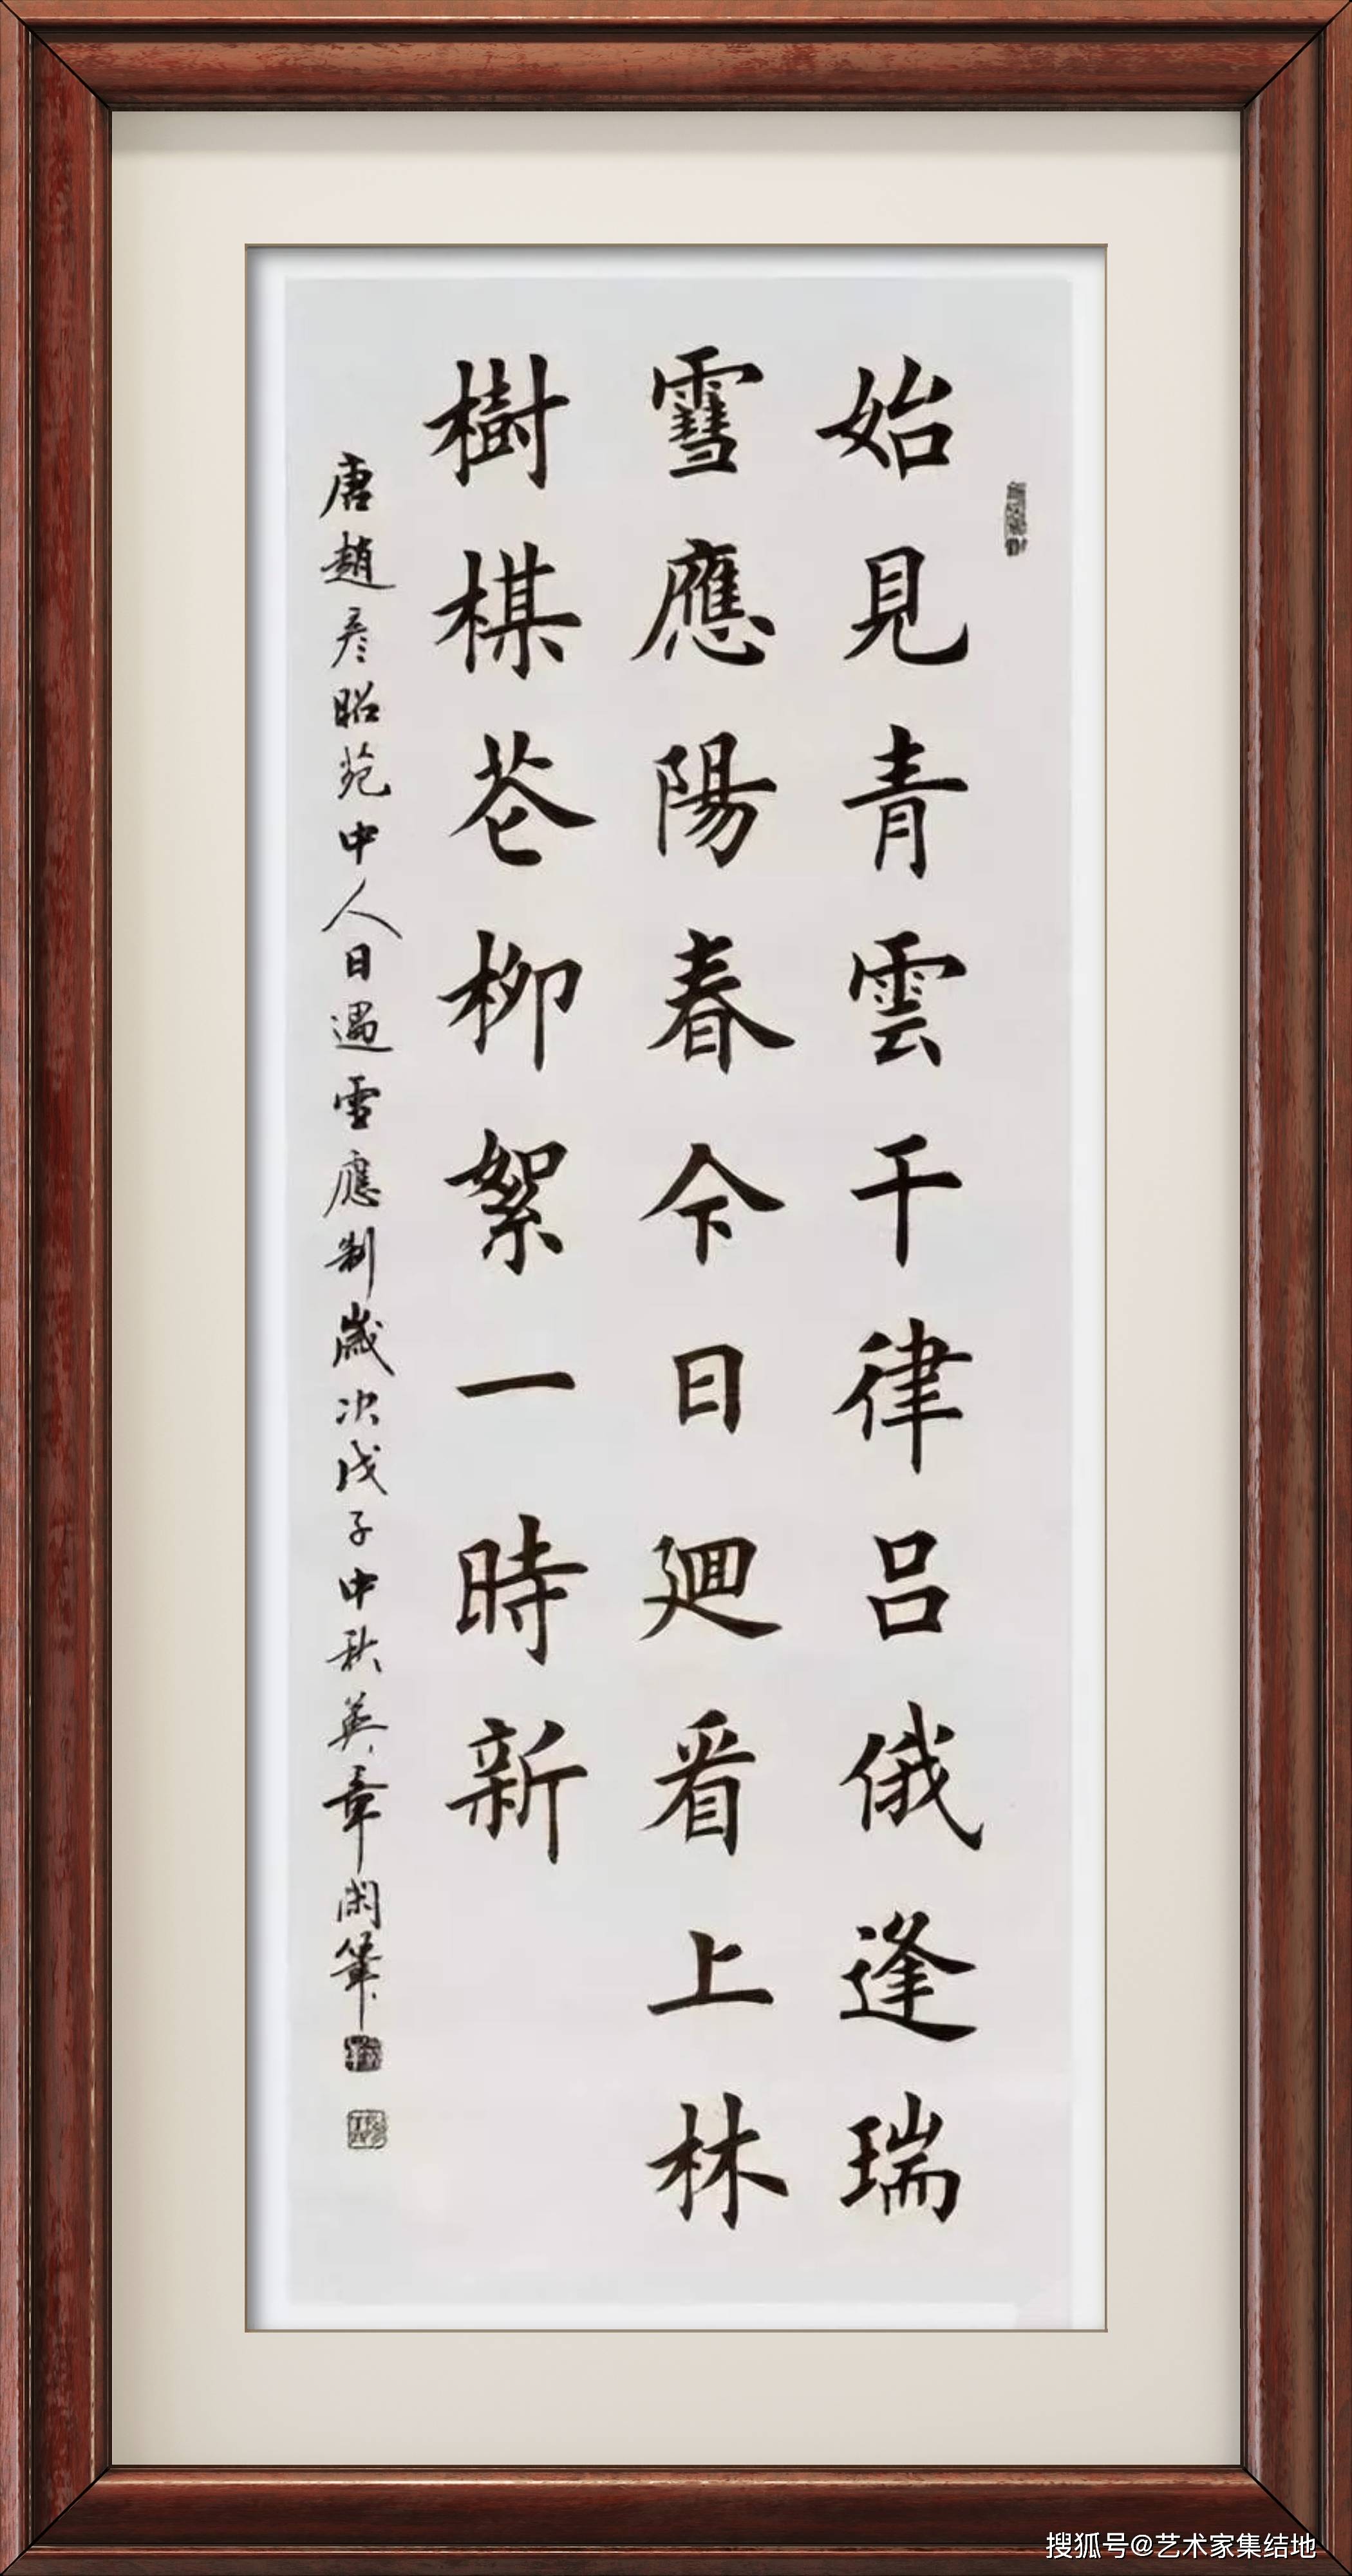 始見青雲干律呂俄逢瑞
雪應陽春今日迴看上林
樹楳花柳絮一時新
唐趙彦昭苑中人日遇雪應制歲次戊子中秋英章閑筆
搜狐号@艺术家集结地